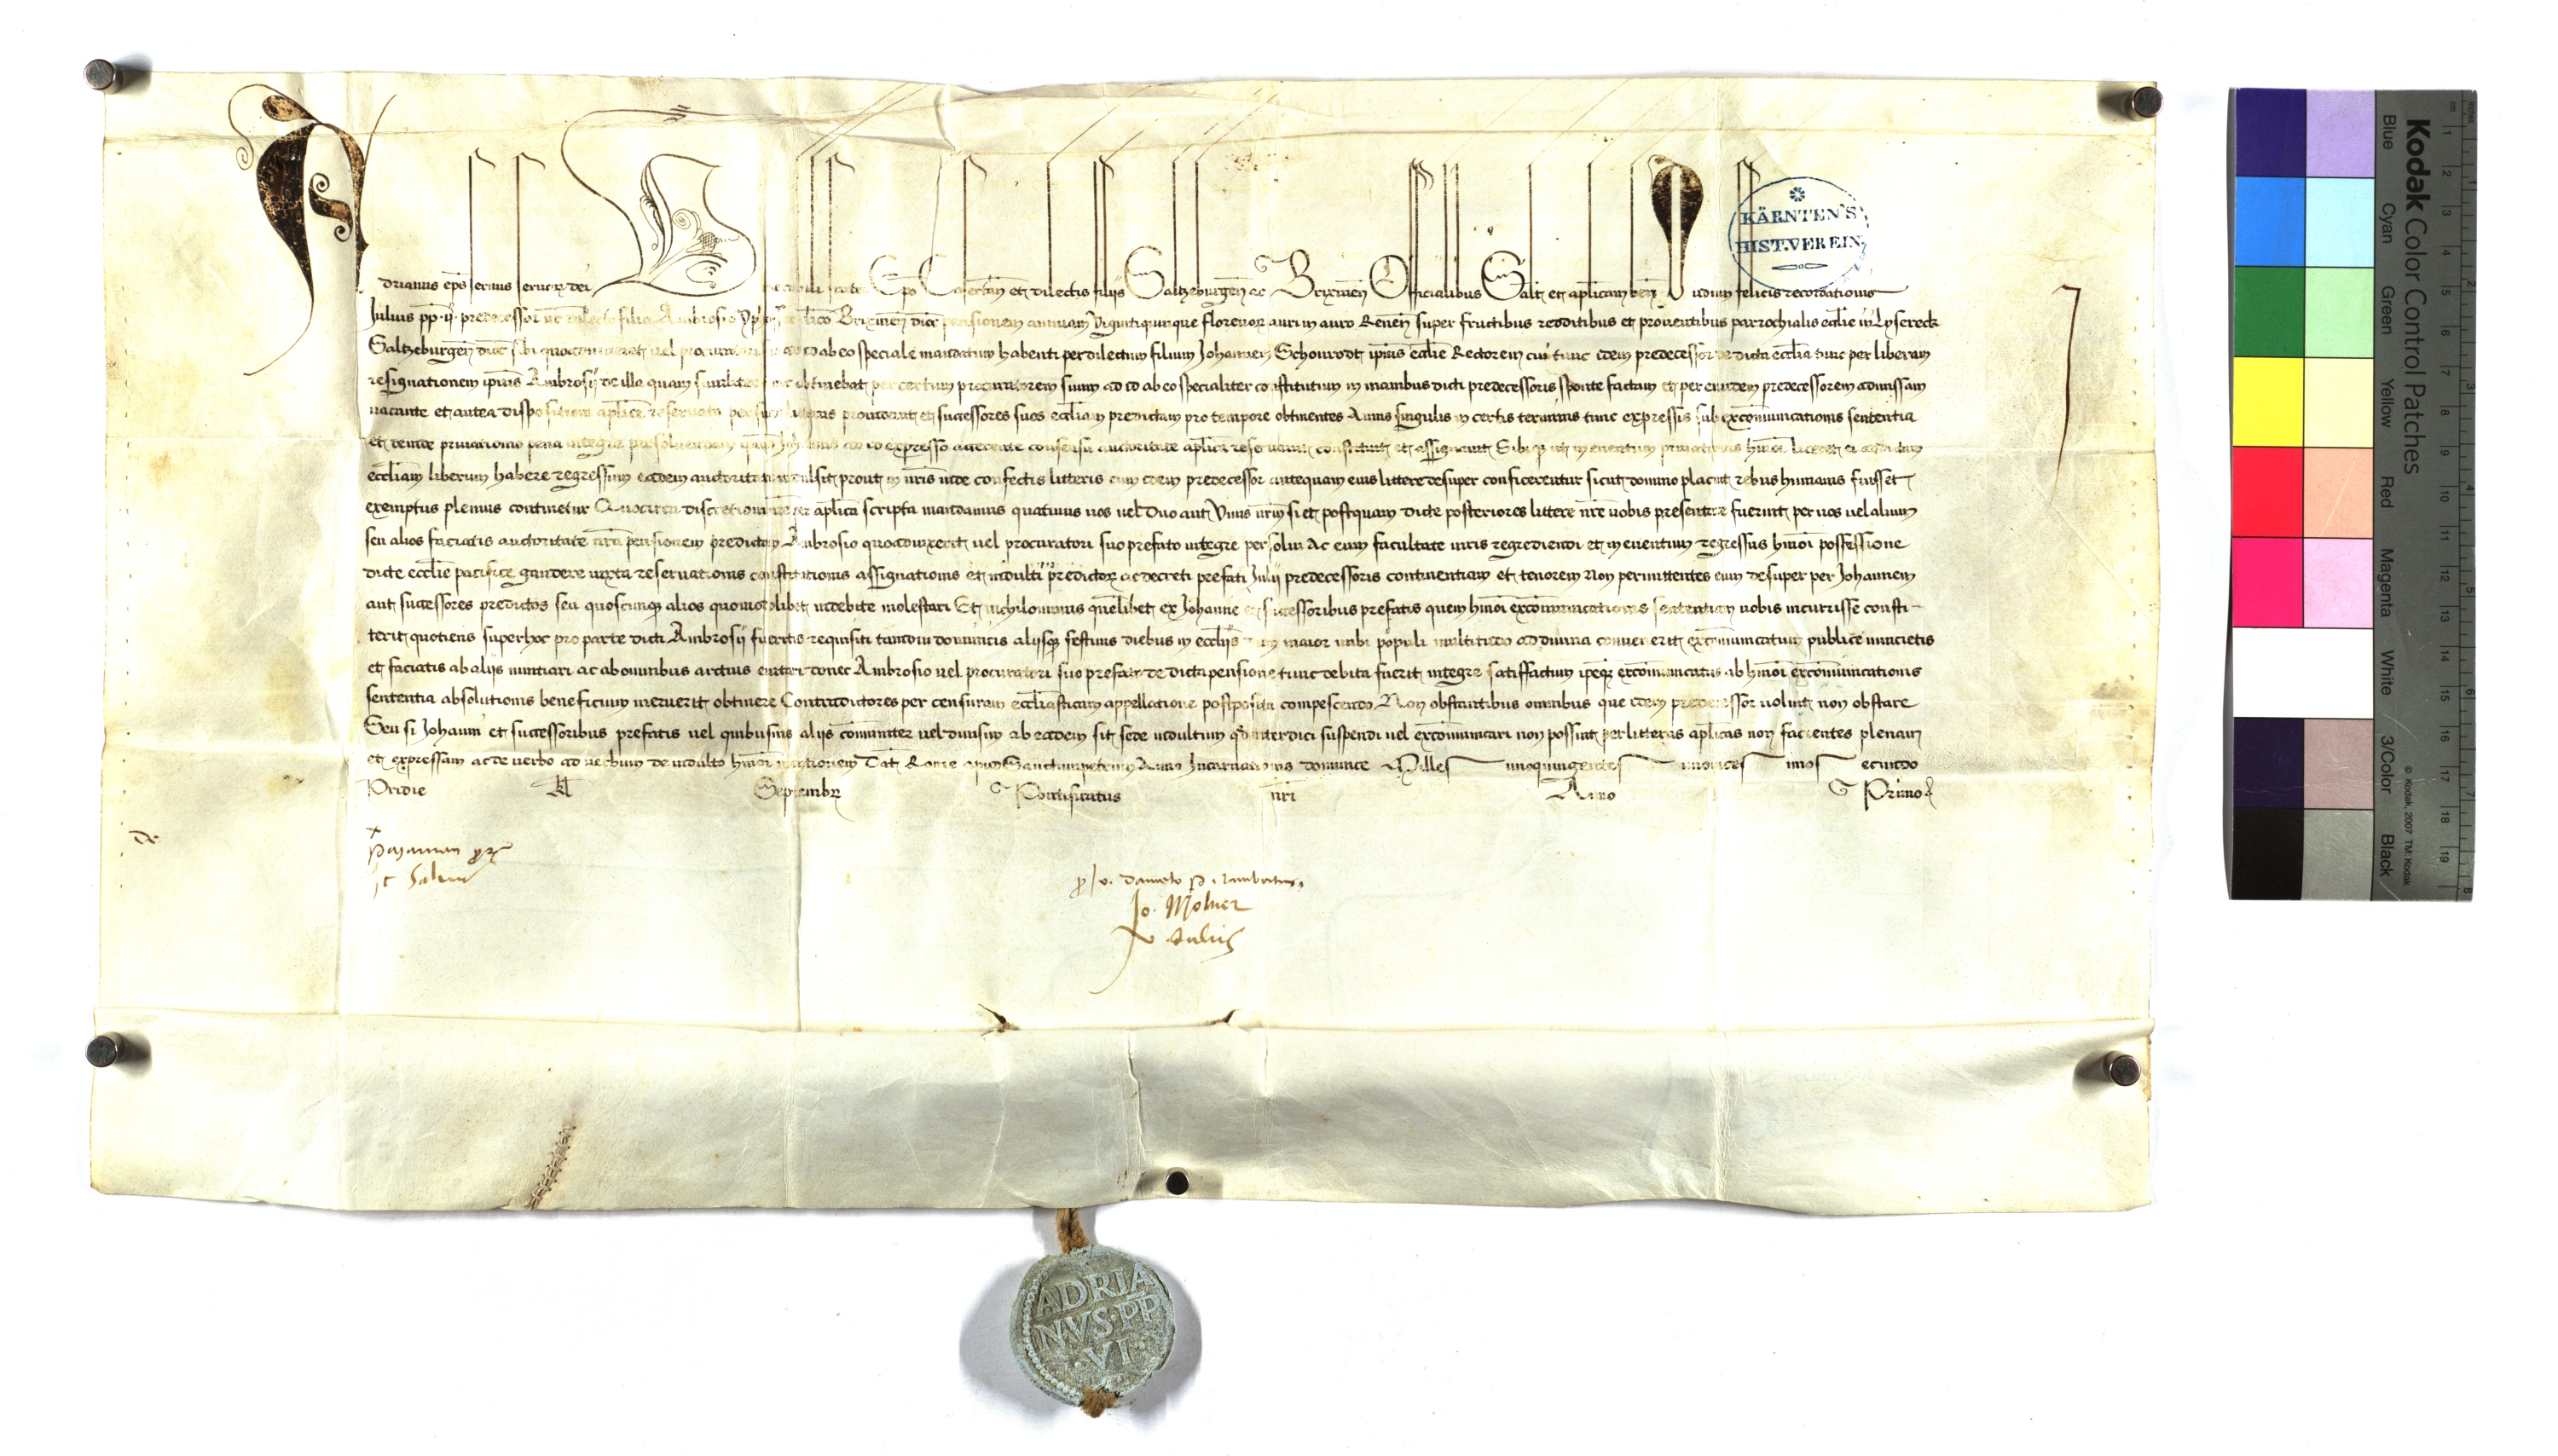 Adrianus ep̄s seruus seruoꝝ dei Ven Ep̄o Casertan̄ et dilectis filijs Saltzeburgeñ ac Brixineñ Officialibus Salt̄ et ap̄licam beñ Dudum felicis recordationis
Julius pp. ij. predecessor nr̄ dilecto filio Ambrosio Brixineñ dioc̄ pensionem annuam Vigintiquinque florenoꝝ auri in auro Reneñ super fructibus redditibus et prouentibus parrochialis ecc̄lie in Lysereck
Saltzeburgeñ dioc̄ sibi quoaduixerit vel procuratori ad id ab eo speciale mandatum habenti per dilectum filium Johannem Schonrodt ip̄ius ecc̄lie Rectorem cui tunc idem predecessor de dicta ecc̄lia tunc per liberam
resignationem ip̄ius Ambrosij de illa quam tunc obtinebat per certum procuratorem suum ad id ab eo specialiter constitutum in manibus dicti predecessoris sponte factam et per eundem predecessorem admissam
uacante et antea dispositioni ap̄lice reseruata per suas litteras prouiderat et successores suos ecc̄liam predictam pro tempore obtinentes Annis singulis in certis terminis tunc expressis sub excom̄unicationis sententia
et deinde priuationis pena integre persoluendam ad id expresso accedente consensu auctoritate ap̄lica reseruauit constituit et assignauit Sibiqꝫ in euentum priuationis hm̄oi liceret ad dictam
ecc̄liam liberum habere regressum eadem auctoritate indulsit prout in nr̄is inde confectis litteris cum idem predecessor antequam eius littere desuper conficerentur sicut domino placuit rebus humanis fuisset
exemptus plenius continetur Quocirca discretioni ap̄lica scripta mandamus quatinus uos uel Duo aut Vnus vr̄m si et postquam dicte posteriores littere nr̄e uobis presentate fuerint per uos uel alium
seu alios faciatis auctoritate nr̄a pensionem predictam Ambrosio quoaduixerit uel procuratori suo prefato integre persolui Ac eum facultate iuris regrediendi et in euentum regressus hm̄oi possessione
dicte ecc̄lie pacifice gaudere iuxta reseruationis constitutionis assignationis et indulti predictoꝝ ac decreti prefati Julij predecessoris continentiam et tenorem Non permittentes eum desuper per Johannem
aut successores predictos seu quoscunqꝫ alios quomodolibet indebite molestari Et nichilominus quemlibet ex Johanne et successoribus prefatis quem hm̄oi excom̄unicationis sententiam uobis incurrisse consti-
terit quotiens super hoc pro parte dicti Ambrosij fueritis requisiti tamdiu dominicis alijsqꝫ festiuis diebus in ecc̄lijs dum maior inibi populi multitudo ad diuina conuenerit excom̄unicatum publice nuncietis
et faciatis ab alijs nuntiari ac ab omnibus arctius euitari donec Ambrosio uel procuratori suo prefato de dicta pensione tunc debita fuerit integre satisfactum ip̄eqꝫ excom̄unicatus ab hm̄oi excom̄unicationis
sententia absolutionis beneficium meruerit obtinere Contradictores per censuram ecc̄liasticam appellatione postposita compescendo Non obstantibus omnibus que idem predecessor uoluit non obstare
Seu si Johanni et successoribus prefatis uel quibusuis alijs com̄uniter uel diuisim ab eadem sit sede indultum qd̄ interdici suspendi uel excom̄unicari non possint per litteras ap̄licas non facientes plenam
et expressam ac de uerbo ad uerbum de indulto hm̄oi mentionem Dat̄ Rome apud Sanctumpetrum Anno Incarnationis dominice Milles imoquingentes imouices imos ecundo
Pridie Kl̄ Septembꝝ Pontificatus nr̄i Anno Primo
de
Jo. Molner
KÄRNTEN'S
HIST. VEREIN
ADRIA
NVS·PP
·VI·
Kodak Color Control Patches
Blue Cyan Green Yellow Red Magenta White 3/Color Black
© Kodak, 2007 TM: Kodak
cm 1 2 3 4 5 6 7 8 9 10 11 12 13 14 15 16 17 18 19
inches 1 2 3 4 5 6 7 8